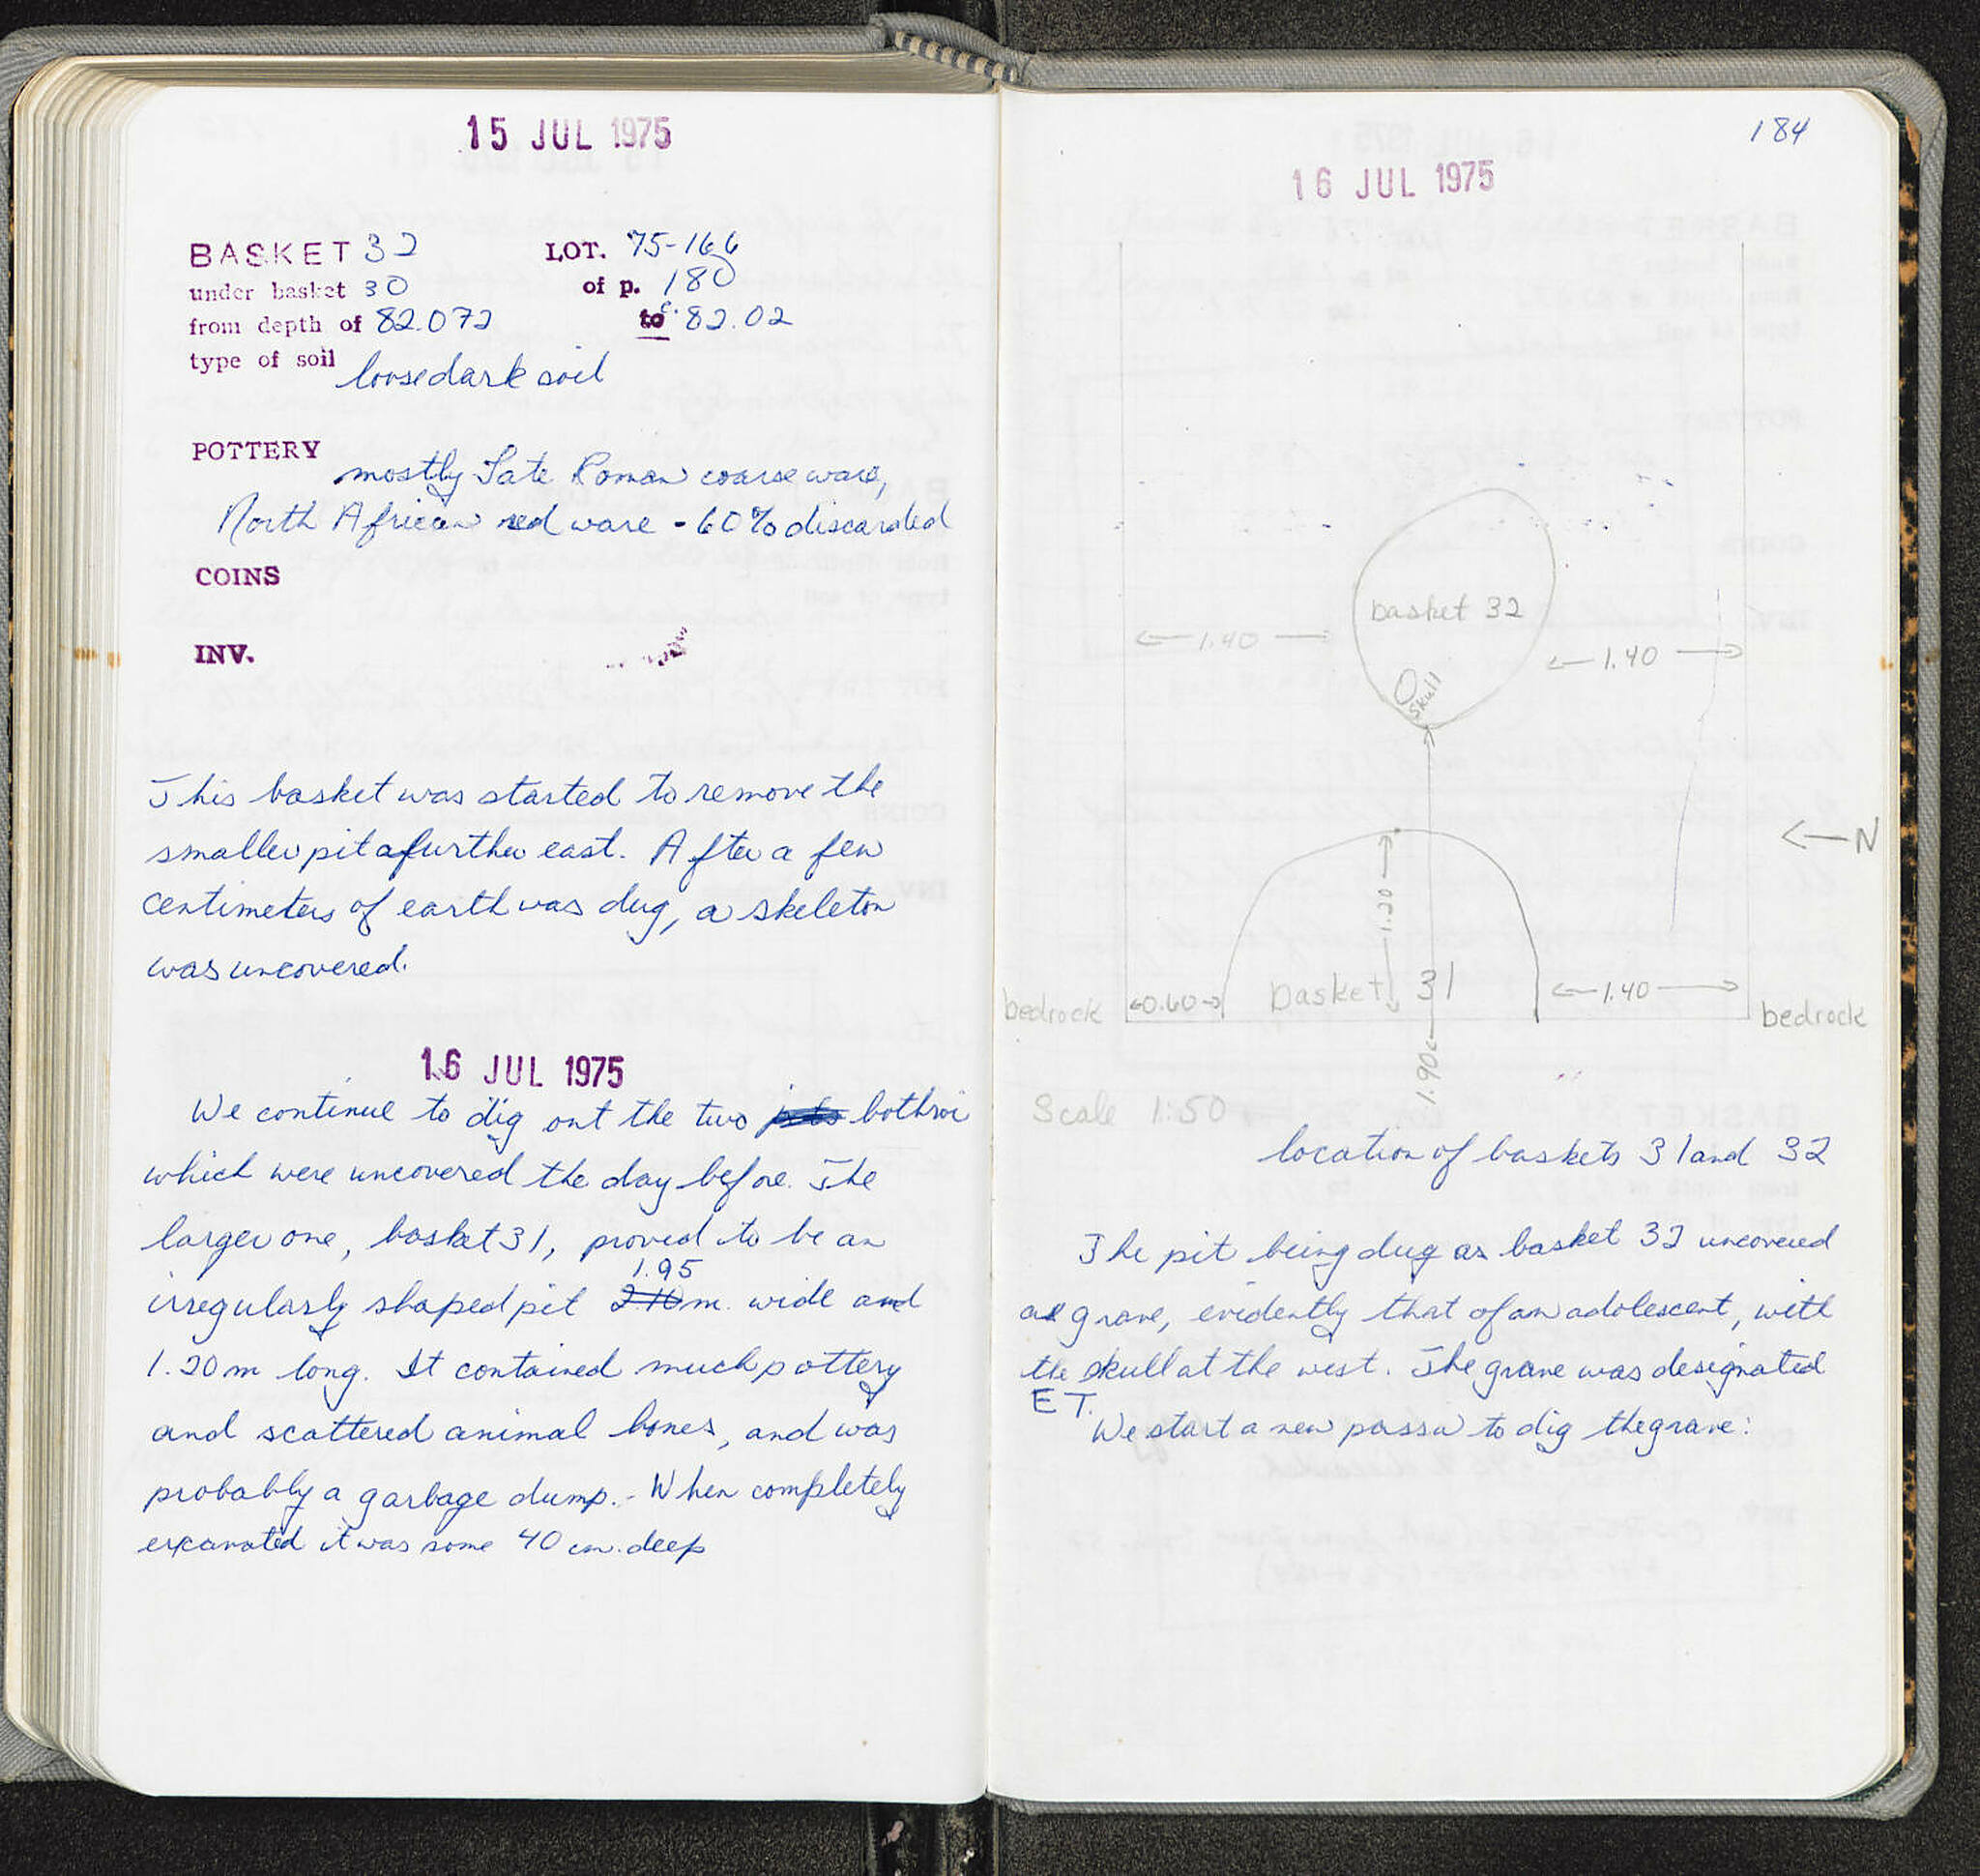 15 JUL 1975
BASKET 32 LOT. 75-166
under basket 30 of p. 180
from depth of 82.072 to c. 82.02
type of soil loose dark soil
POTTERY mostly Late Roman coarse ware,
North African red ware - 60% discarded
COINS
INV.
This basket was started to remove the
smaller pit further east. After a few
centimeters of earth was dug, a skeleton
was uncovered.
16 JUL 1975
We continue to dig out the two pits bothroi
which were uncovered the day before. The
larger one, basket 31, proved to be an
1.95
irregularly shaped pit 2.10 m. wide and
1.20 m long. It contained much pottery
and scattered animal bones, and was
probably a garbage dump. - When completely
excavated it was some 40 cm. deep
184
16 JUL 1975
basket 32
1.40
1.40
skull
N
1.20
basket 31
bedrock 0.60 1.40 bedrock
1.90
Scale 1:50
location of baskets 31 and 32
The pit being dug as basket 32 uncovered
a grave, evidently that of an adolescent, with
the skull at the west. The grave was designated
ET.
We start a new passa to dig the grave: